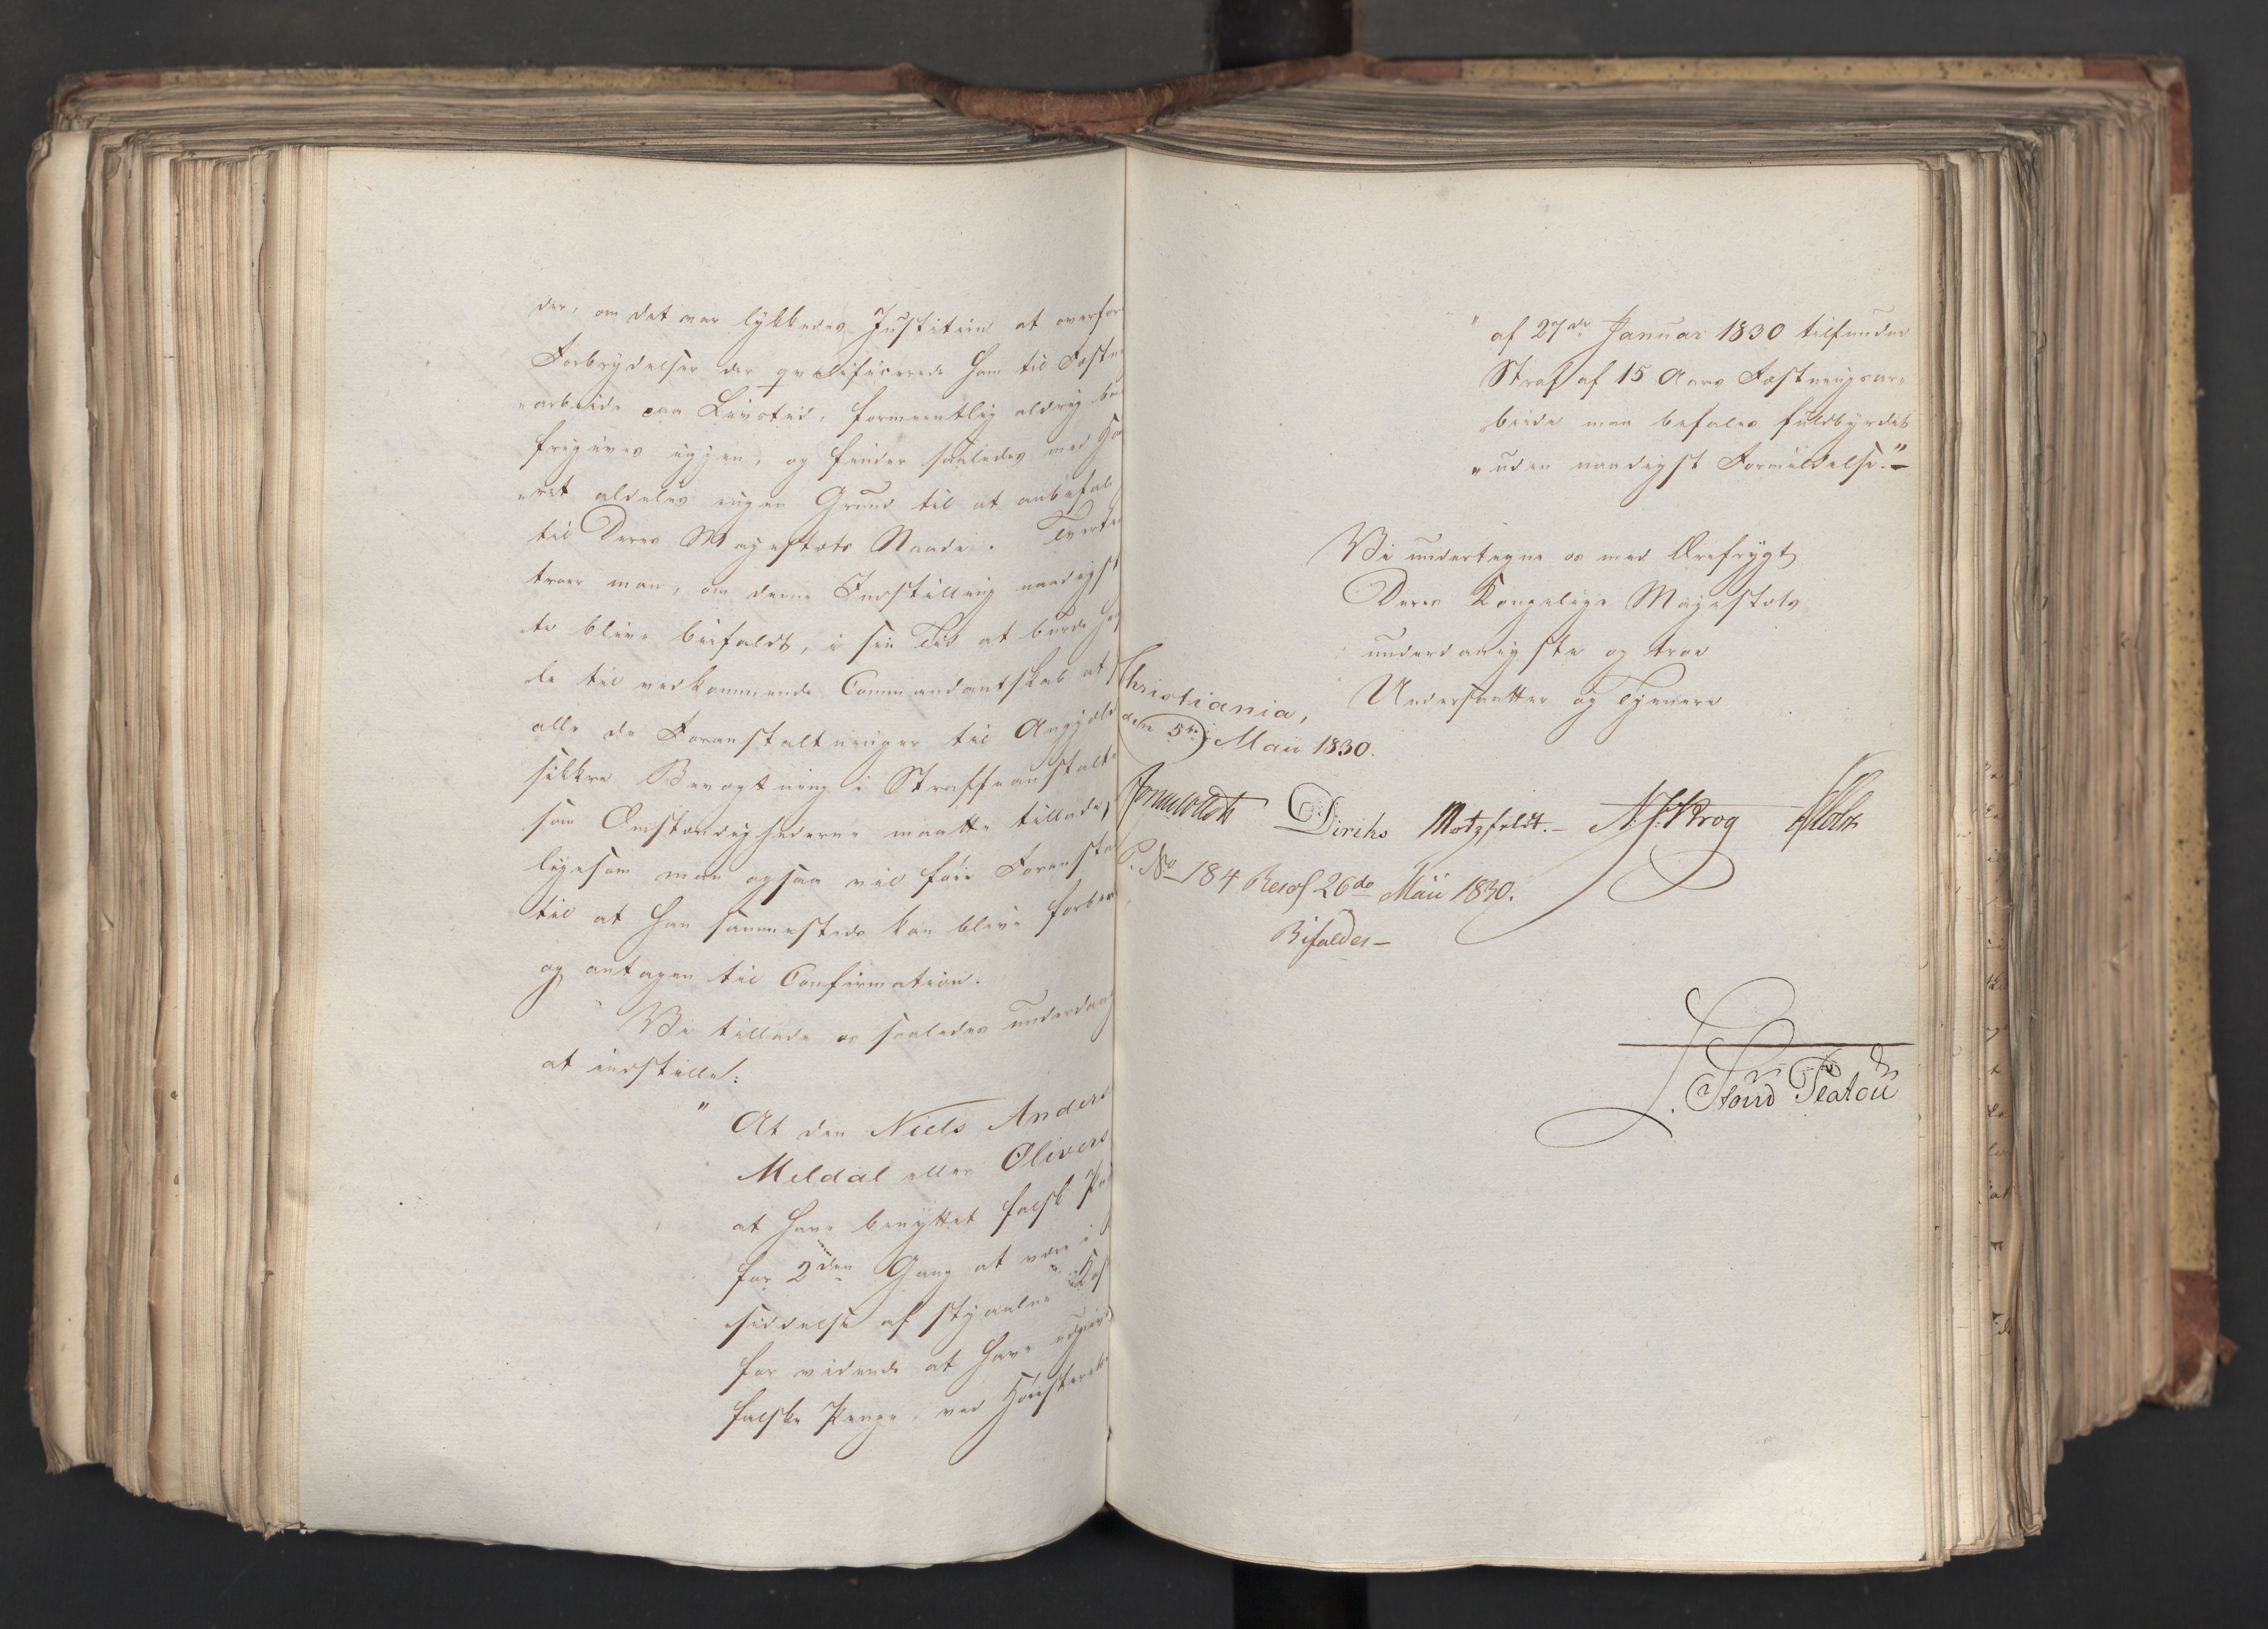 der, om det var lykkedes Justitien at overfør
Forbrydelser der qvalificerede ham til Fæstn
arbeide paa Livstid, formeentlig aldrig bu
frigives igjen, og finder saaledes med Høi
eret aldeles ingen Grund til at anbefal
til Deres Majestæts Naade. Tverti
troer man, om denne Indstilling naadigst
te blive bifaldt, i sin Tid at burde hen
de til vedkommende Commandantskab at
alle de Foranstaltninger til Angjeld
sikkre Bevogtning i Straffeanstalt
som Omstændighederne maatte tillade,
ligesom man ogsaa vil føie Foransta
til at han sammesteds kan blive forber
og antagen til Confirmation.
Vi tillade os saaledes underdan
at indstille:
" At den Niels Anders
Meldal eller Olivers
at have benyttet falsk Pa
for 2den Gang at være i
siddelse af stjaalne Kos
for vidende at have udgivet
falske Penge, ved Høiesterets
" af 27de Januar 1830 tilfundne
Straf af 15 Aars Fæstningsar-
beide maa befales fuldbyrdet
" uden naadigst Formildelse." –
Vi undertegne os med Ærefrygt
Deres Kongelige Majestæts
underdanigste og troe
Undersaatter og Tjenere
Christiania,
den 5te Maii 1830.
Diriks Motzfeldt. – N. J. Krog Holst
P. No 184 Resol 26de Maii 1830.
Bifaldes –
Stoud Platou